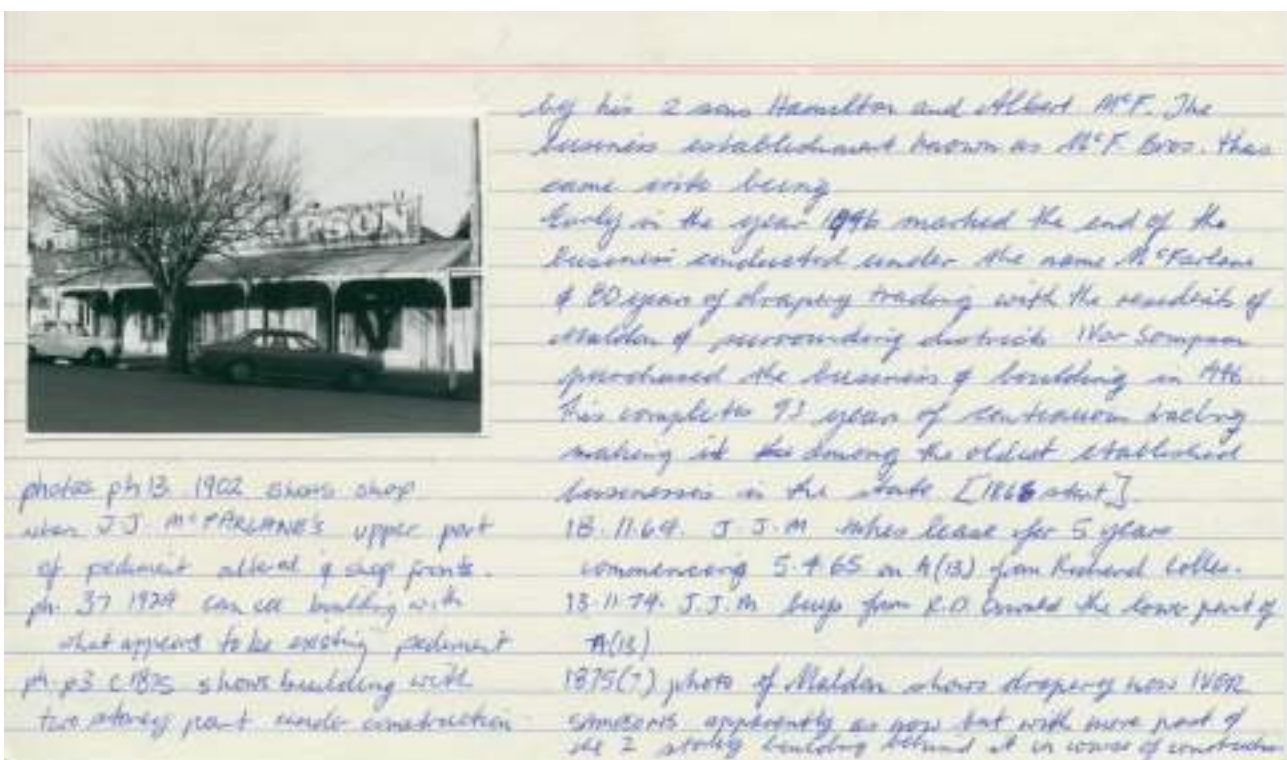 ERSON
photos ph 13. 1902 shows shop
when J.J. McFARLANE'S upper part
of pediment altered & shop fronts.
ph. 37 1924 can see building with
what appears to be existing pediment
ph. p3 c1875 shows building with
two storey part under construction
by his 2 sons Hamilton and Albert McF. The
business establishment known as McF. Bros. thus
came into being
Early in the year 1946 marked the end of the
business conducted under the name McFarlane
& 80 years of drapery trading with the residents of
Maldon & surrounding districts Ivor Sampson
purchased the business & building in
This completes 93 years of continuous trading
making it among the oldest established
businesses in the state [1866 start].
18.11.64. J.J.M takes lease for 5 years
commencing 5.4.65 on A(13) from Richard Colles.
13.11.74. J.J.M buys from R.D. Oswald the lower part of
A(13)
1875(?) photo of Maldon shows drapery now IVOR
SAMPSONS apparently as now but with more part of
the 2 storey building behind it in course of construction